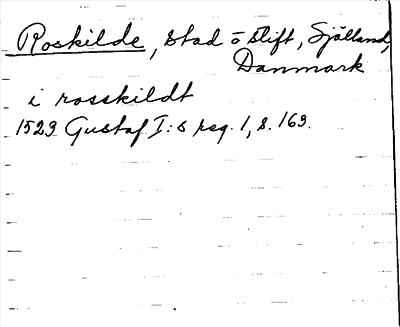 Roskilde, stad o stift, Själland,
Danmark
i rosskildt
1523 Gustaf I:s reg. 1, s. 163.